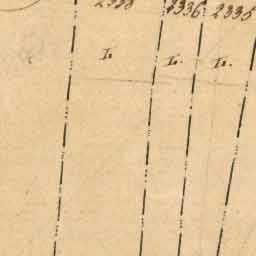 2338 2336 2335
L. L. L.